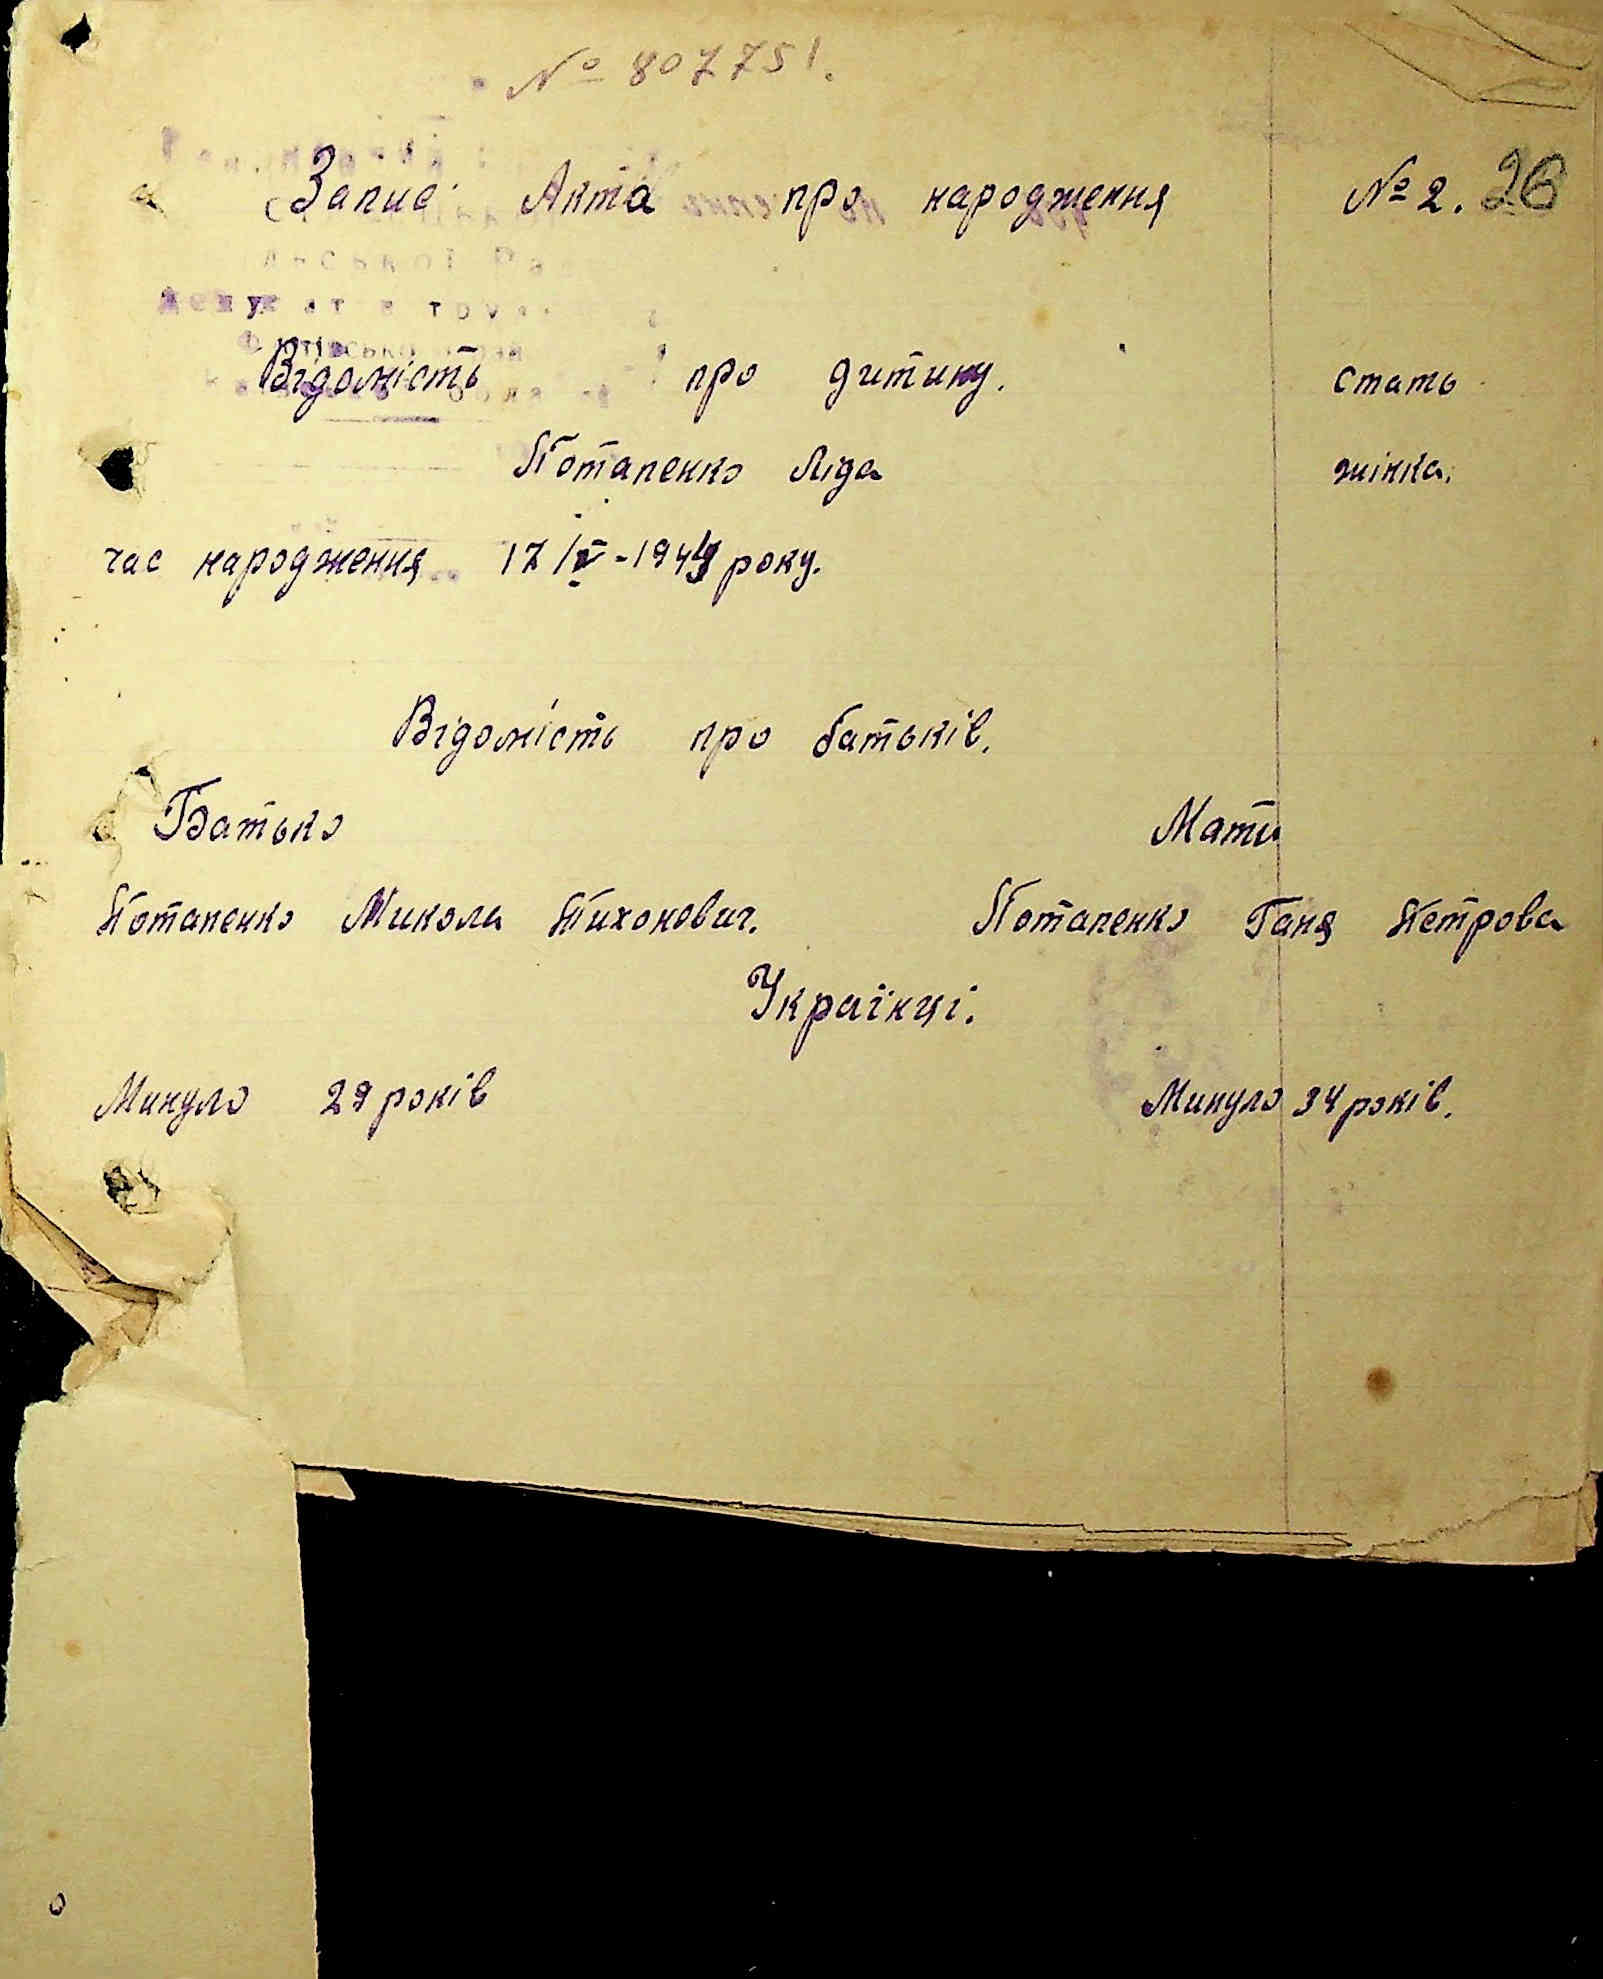 № 807751.
Запис Акта про народження № 2. 26
Відомість про дитину. стать
Потапенко Ліда жінка.
час народження 17/IV-1944 року.
Відомість про батьків.
Батько Мати
Потапенко Микола Тихонович. Потапенко Ганя Петрова
Українці.
Минуло 29 років Минуло 34 років.